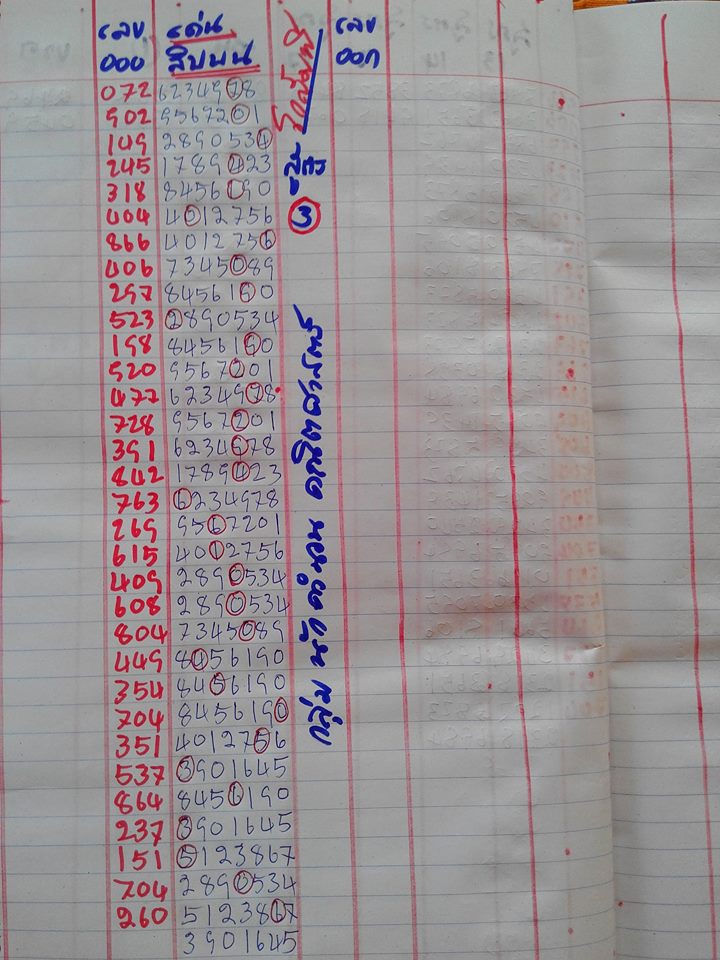 เลข เด่น เลข
ออก สิบบน ออก
072 6234978
902 9567201
149 2890534
245 1789423
318 8456190
404 4012756
866 4012756
406 7345089
297 8456190
523 2890534
198 8456190
920 9567201
477 6234978
728 9567201
391 6234678
842 1789423
763 6234978
269 9567201
615 4012756
409 2890534
608 2890534
804 7345089
449 8456190
354 8456190
704 8456190
351 4012756
537 3901645
864 8456190
237 3901645
151 5123867
704 2890534
260 5123867
3901645
3
กลุ่ม นักคำนวน คณิตศาสตร์